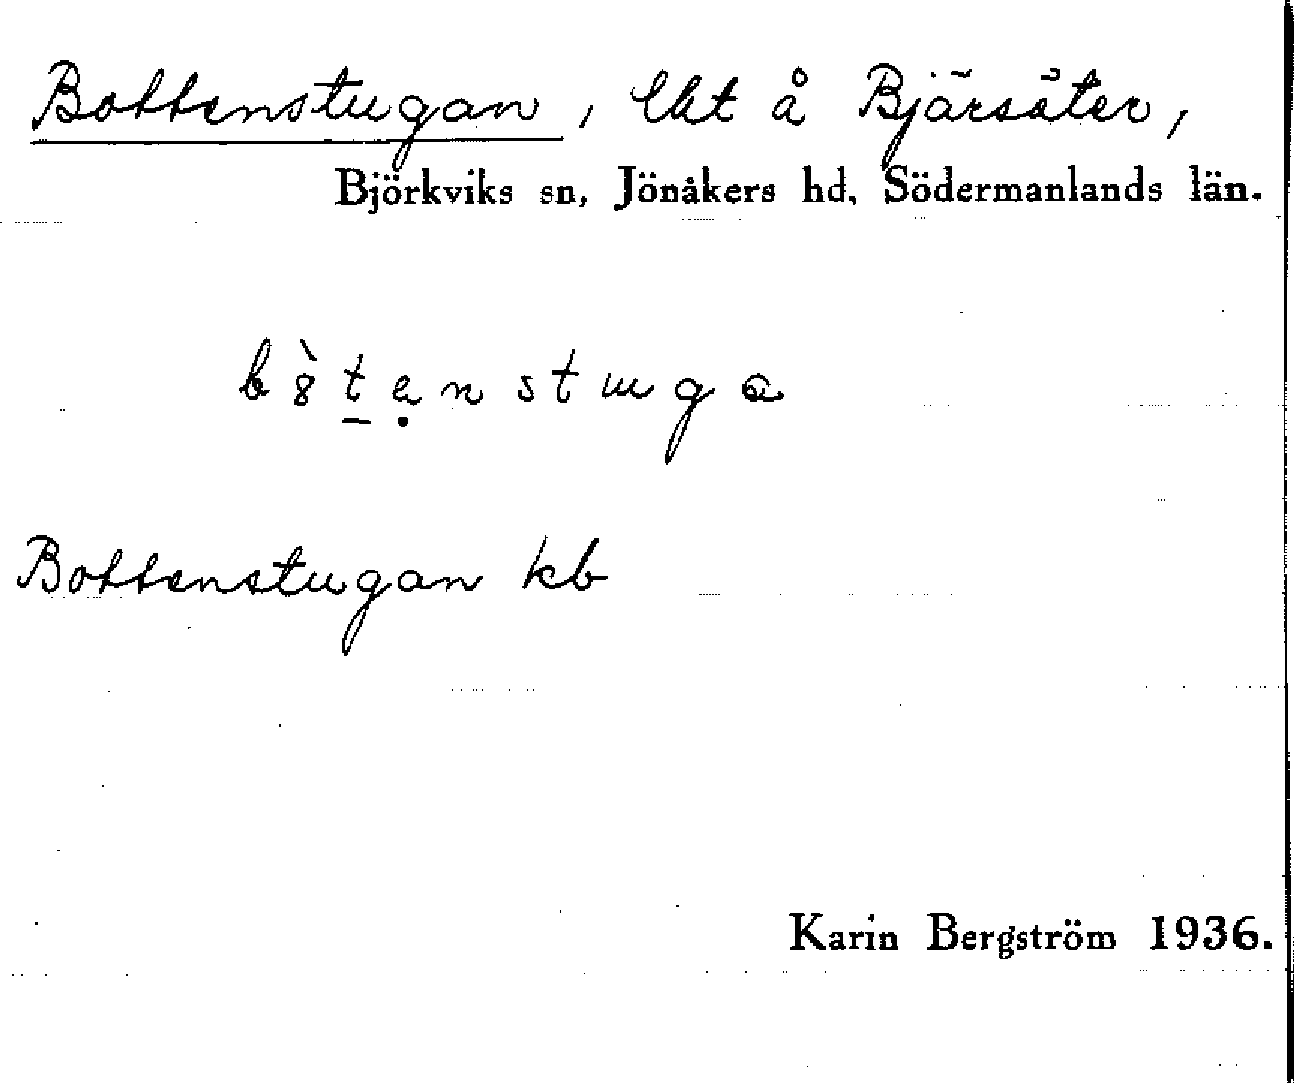 Bottenstugan, lht å Bjärsäter,
Björkviks sn, Jönåkers hd, Södermanlands län.
Bottenstugan kb
Karin Bergström 1936.